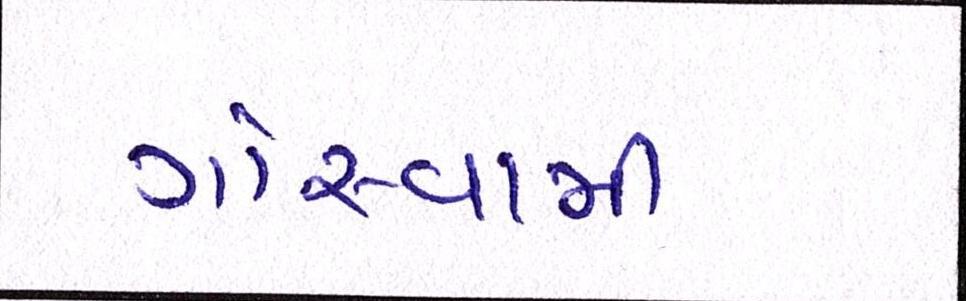 ગોસ્વામી